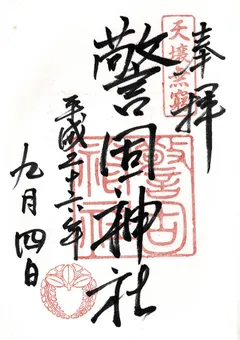 奉拝
天壌無窮
警固神社
警固神社
平成二十二年
九月四日